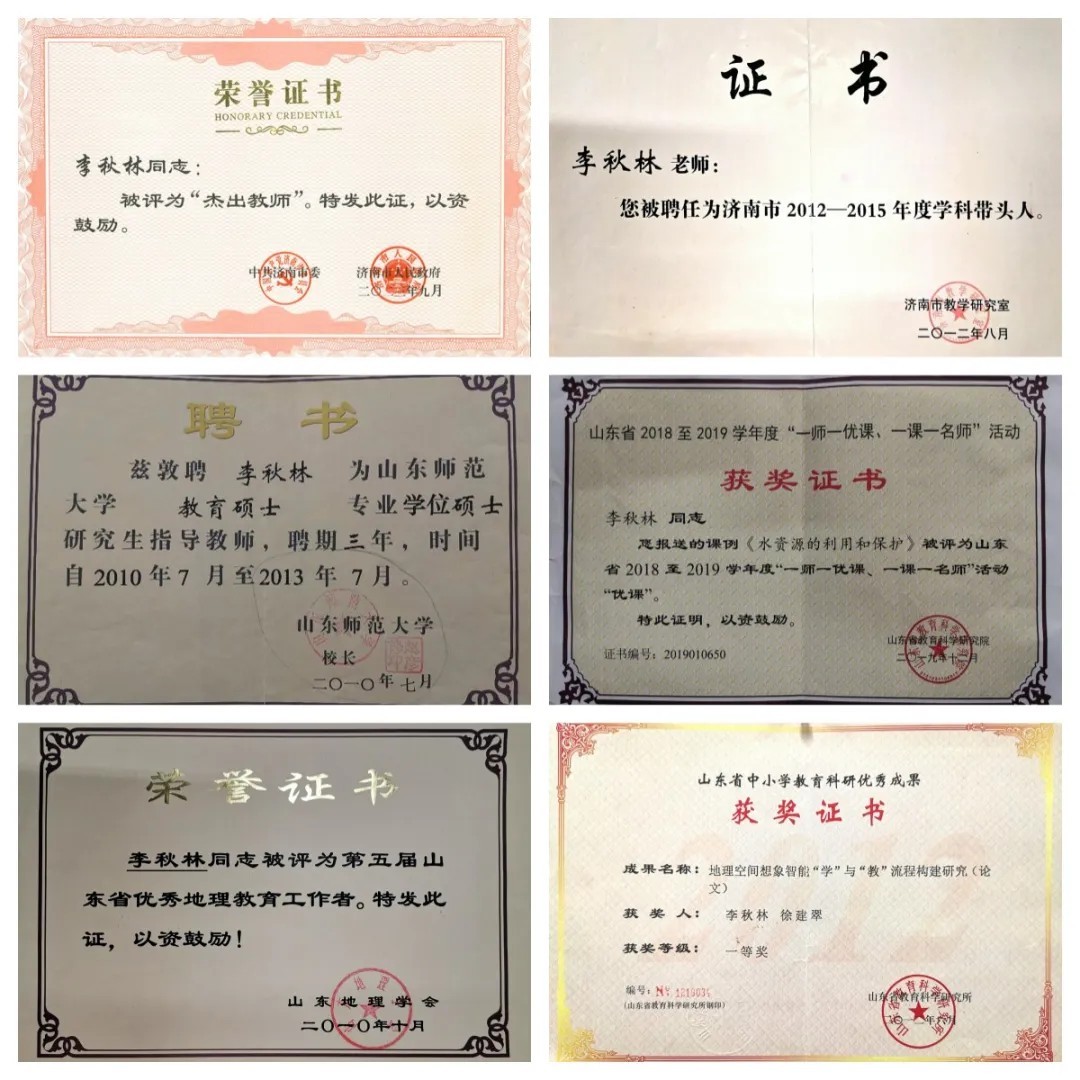 荣誉证书
HONORARY CREDENTIAL
李秋林同志：
被评为“杰出教师”。特发此证，以资
鼓励。
中共济南市委 济南市人民政府
九月
证 书
李秋林 老师：
您被聘任为济南市 2012—2015 年度学科带头人。
济南市教学研究室
二〇一二年八月
聘 书
兹敦聘 李秋林 为山东师范
大学 教育硕士 专业学位硕士
研究生指导教师，聘期三年，时间
自 2010 年 7 月至 2013 年 7 月。
山东师范大学
校长
二〇一〇年七月
山东省 2018 至 2019 学年度“一师一优课、一课一名师”活动
获奖证书
李秋林 同志
您报送的课例《水资源的利用和保护》被评为山东
省 2018 至 2019 学年度“一师一优课、一课一名师”活动
“优课”。
特此证明，以资鼓励。
山东省教育科学研究院
证书编号：2019010650
二〇一九年十二月
荣誉证书
李秋林同志被评为第五届山
东省优秀地理教育工作者。特发此
证，以资鼓励！
山东地理学会
二〇一〇年十月
山东省中小学教育科研优秀成果
获奖证书
成果名称：地理空间想象智能“学”与“教”流程构建研究（论
文）
获 奖 人：李秋林 徐建翠
获奖等级：一等奖
编号：
（山东省教育科学研究所制印）
山东省教育科学研究所